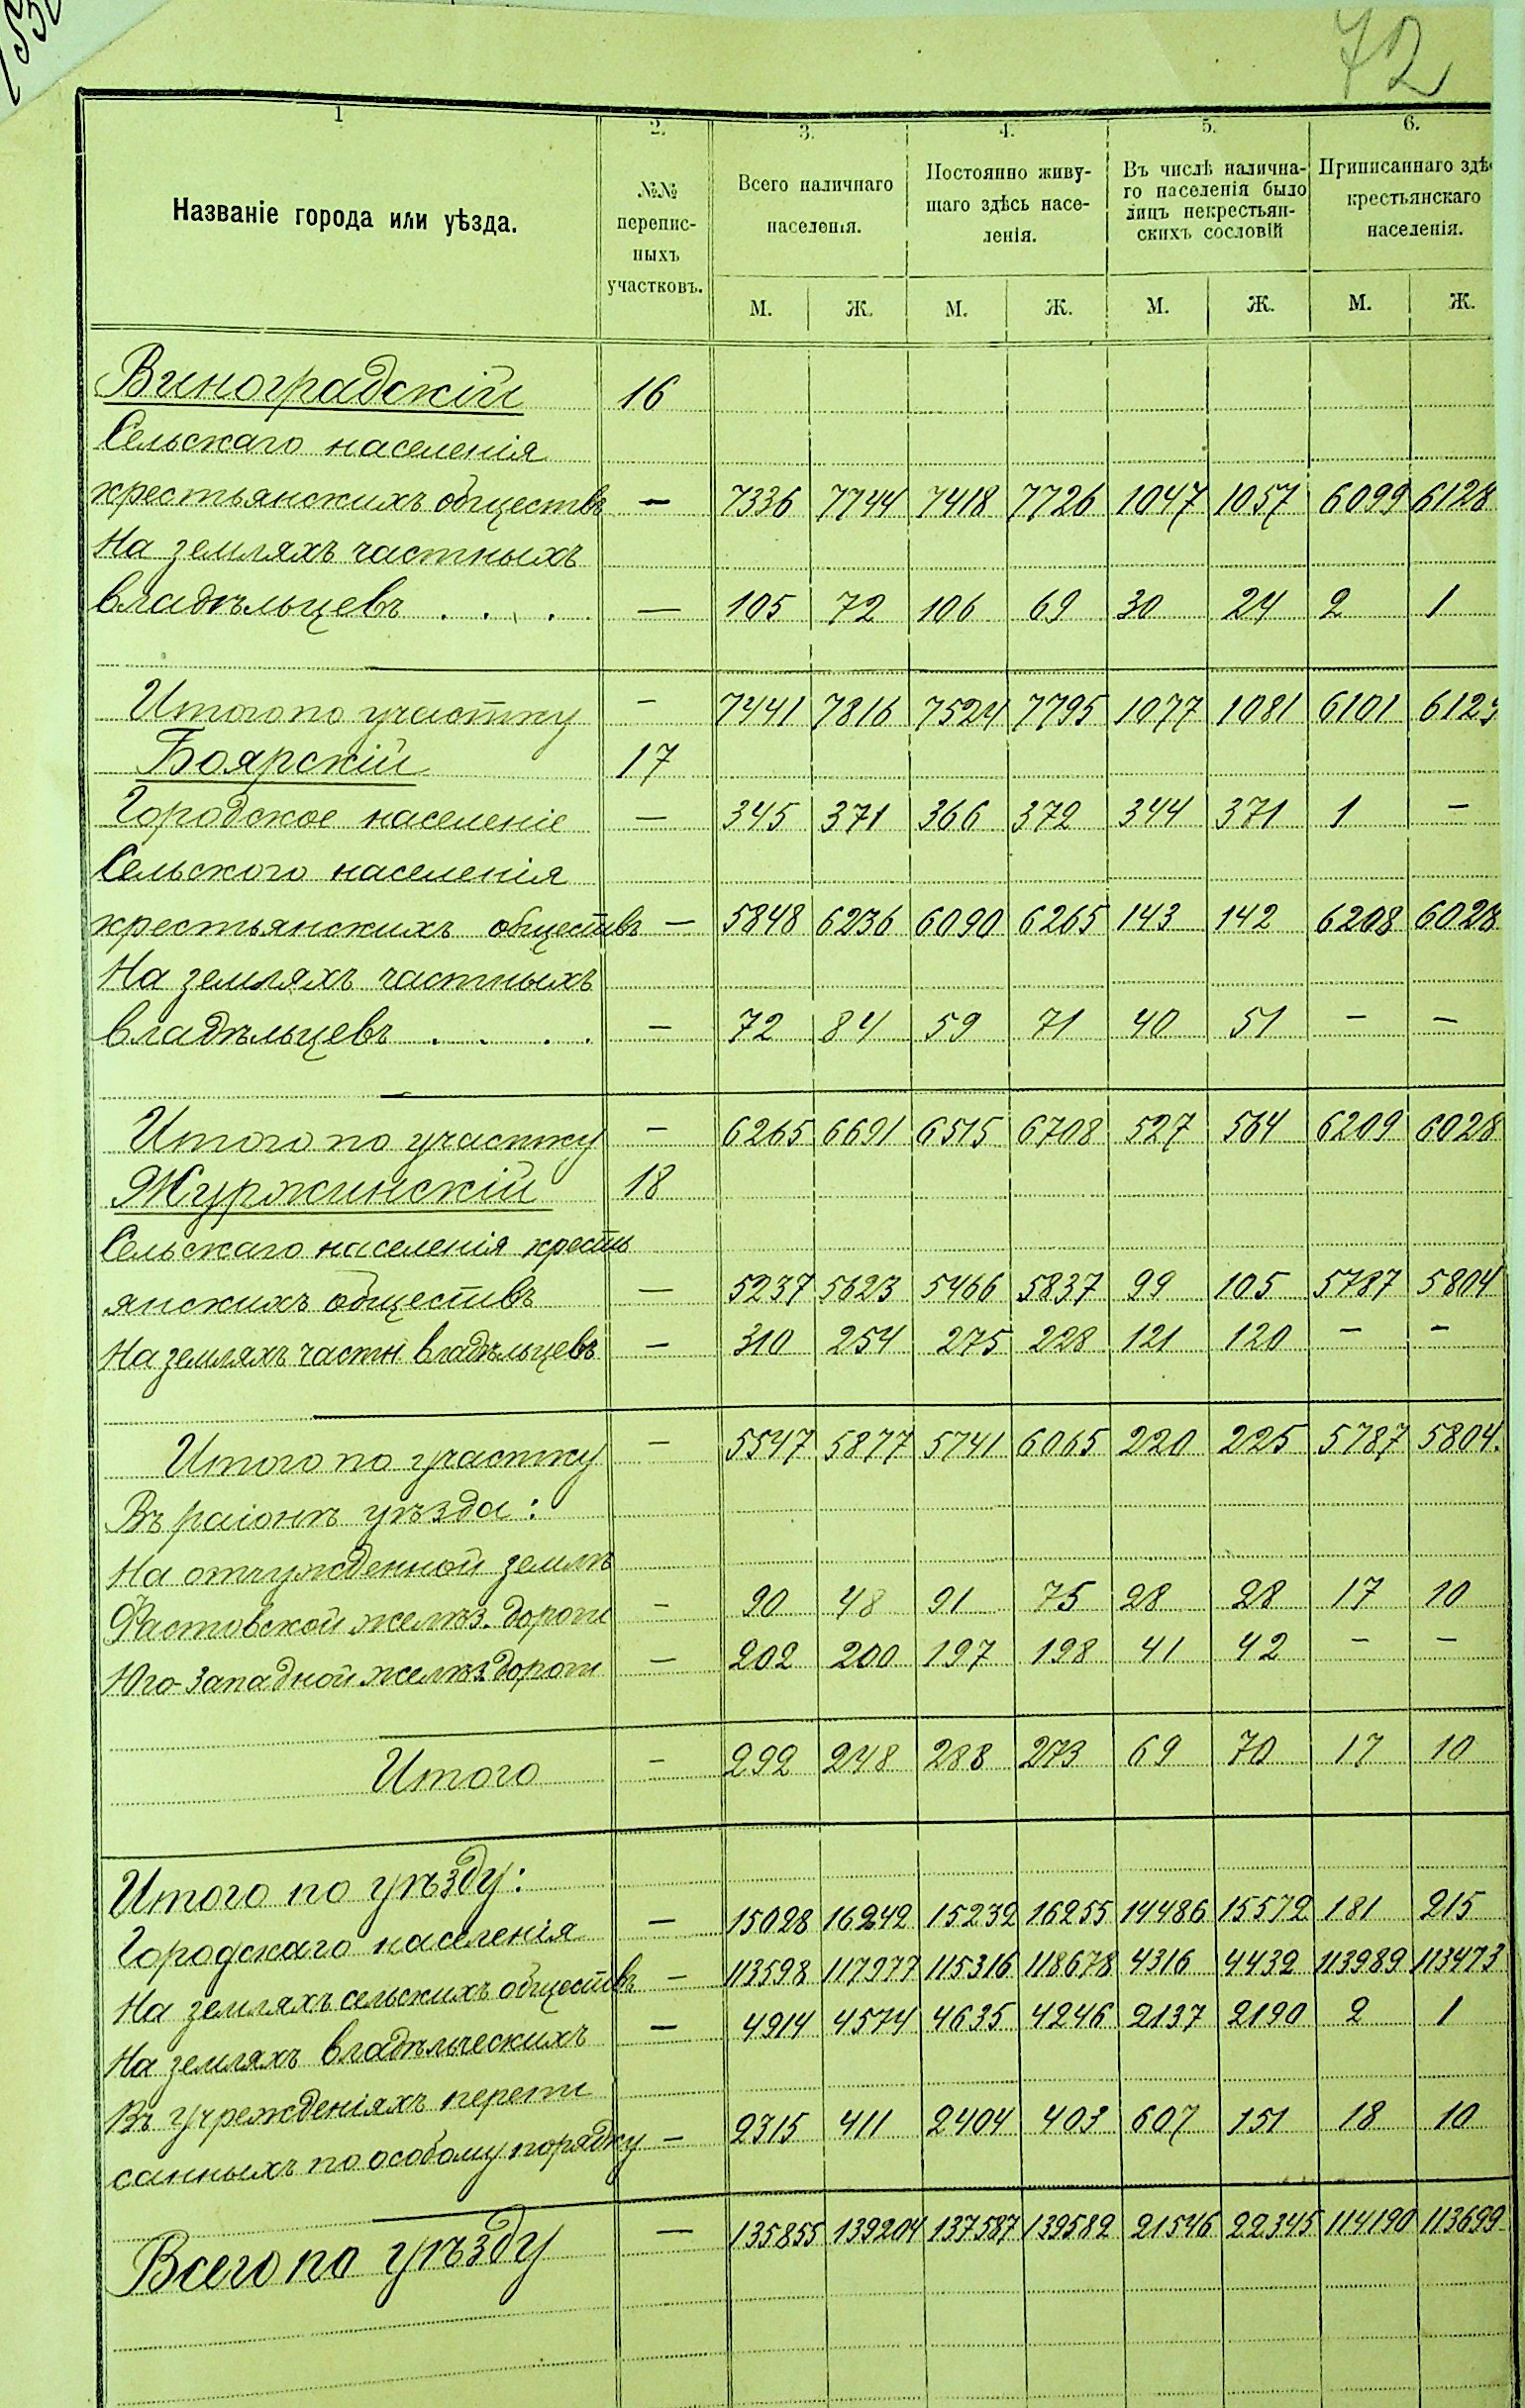 72
1 2. 3. 4. 5. 6.
Названіе города или уѣзда. №№ перепис-ныхъ участковъ. Всего наличнаго населенія. Постоянно живу-щаго здѣсь насе-ленія. Въ числѣ налична-го населенія было лицъ некрестьян-скихъ сословій Приписаннаго здѣ крестьянскаго населенія.
М. Ж. М. Ж. М. Ж. М. Ж.
Виноградскій 16
Сельскаго населенія
крестьянскихъ обществъ — 7336 7744 7418 7726 1047 1057 6099 6128
На земляхъ частныхъ
владѣльцевъ . . . . — 105 72 106 69 30 24 2 1
Итого по участку — 7441 7816 7524 7795 1077 1081 6101 6129
Боярскій 17
Городское населеніе — 345 371 366 372 344 371 1 —
Сельского населенія
крестьянскихъ обществъ — 5848 6236 6090 6265 143 142 6208 6028
На земляхъ частныхъ
владѣльцевъ . . . . — 72 84 59 71 40 51 — —
Итого по участку — 6265 6691 6515 6708 527 564 6209 6028
Журжинскій 18
Сельскаго населенія кресть
янскихъ обществъ — 5237 5623 5466 5837 99 105 5787 5804
На земляхъ частн владѣльцевъ — 310 254 275 228 121 120 — —
Итого по участку — 5547 5877 5741 6065 220 225 5787 5804.
Въ раіонѣ уѣзда:
На отчужденной землѣ
Фастовской желѣз. дороги — 90 48 91 75 28 28 17 10
Юго-Западной желѣз дороги — 202 200 197 198 41 42 — —
Итого — 292 248 288 273 69 70 17 10
Итого по уѣзду:
Городскаго населенія — 15028 16242 15232 16255 14486 15572 181 215
На земляхъ сельскихъ обществъ — 113598 117977 115316 118678 4316 4432 113989 113473
На земляхъ владѣльческихъ — 4914 4574 4635 4246 2137 2190 2 1
Въ учрежденіяхъ перепи
санныхъ по особому порядку — 2315 411 2404 403 607 151 18 10
Всего по уѣзду — 135855 139204 137587 139582 21546 22345 114190 113699